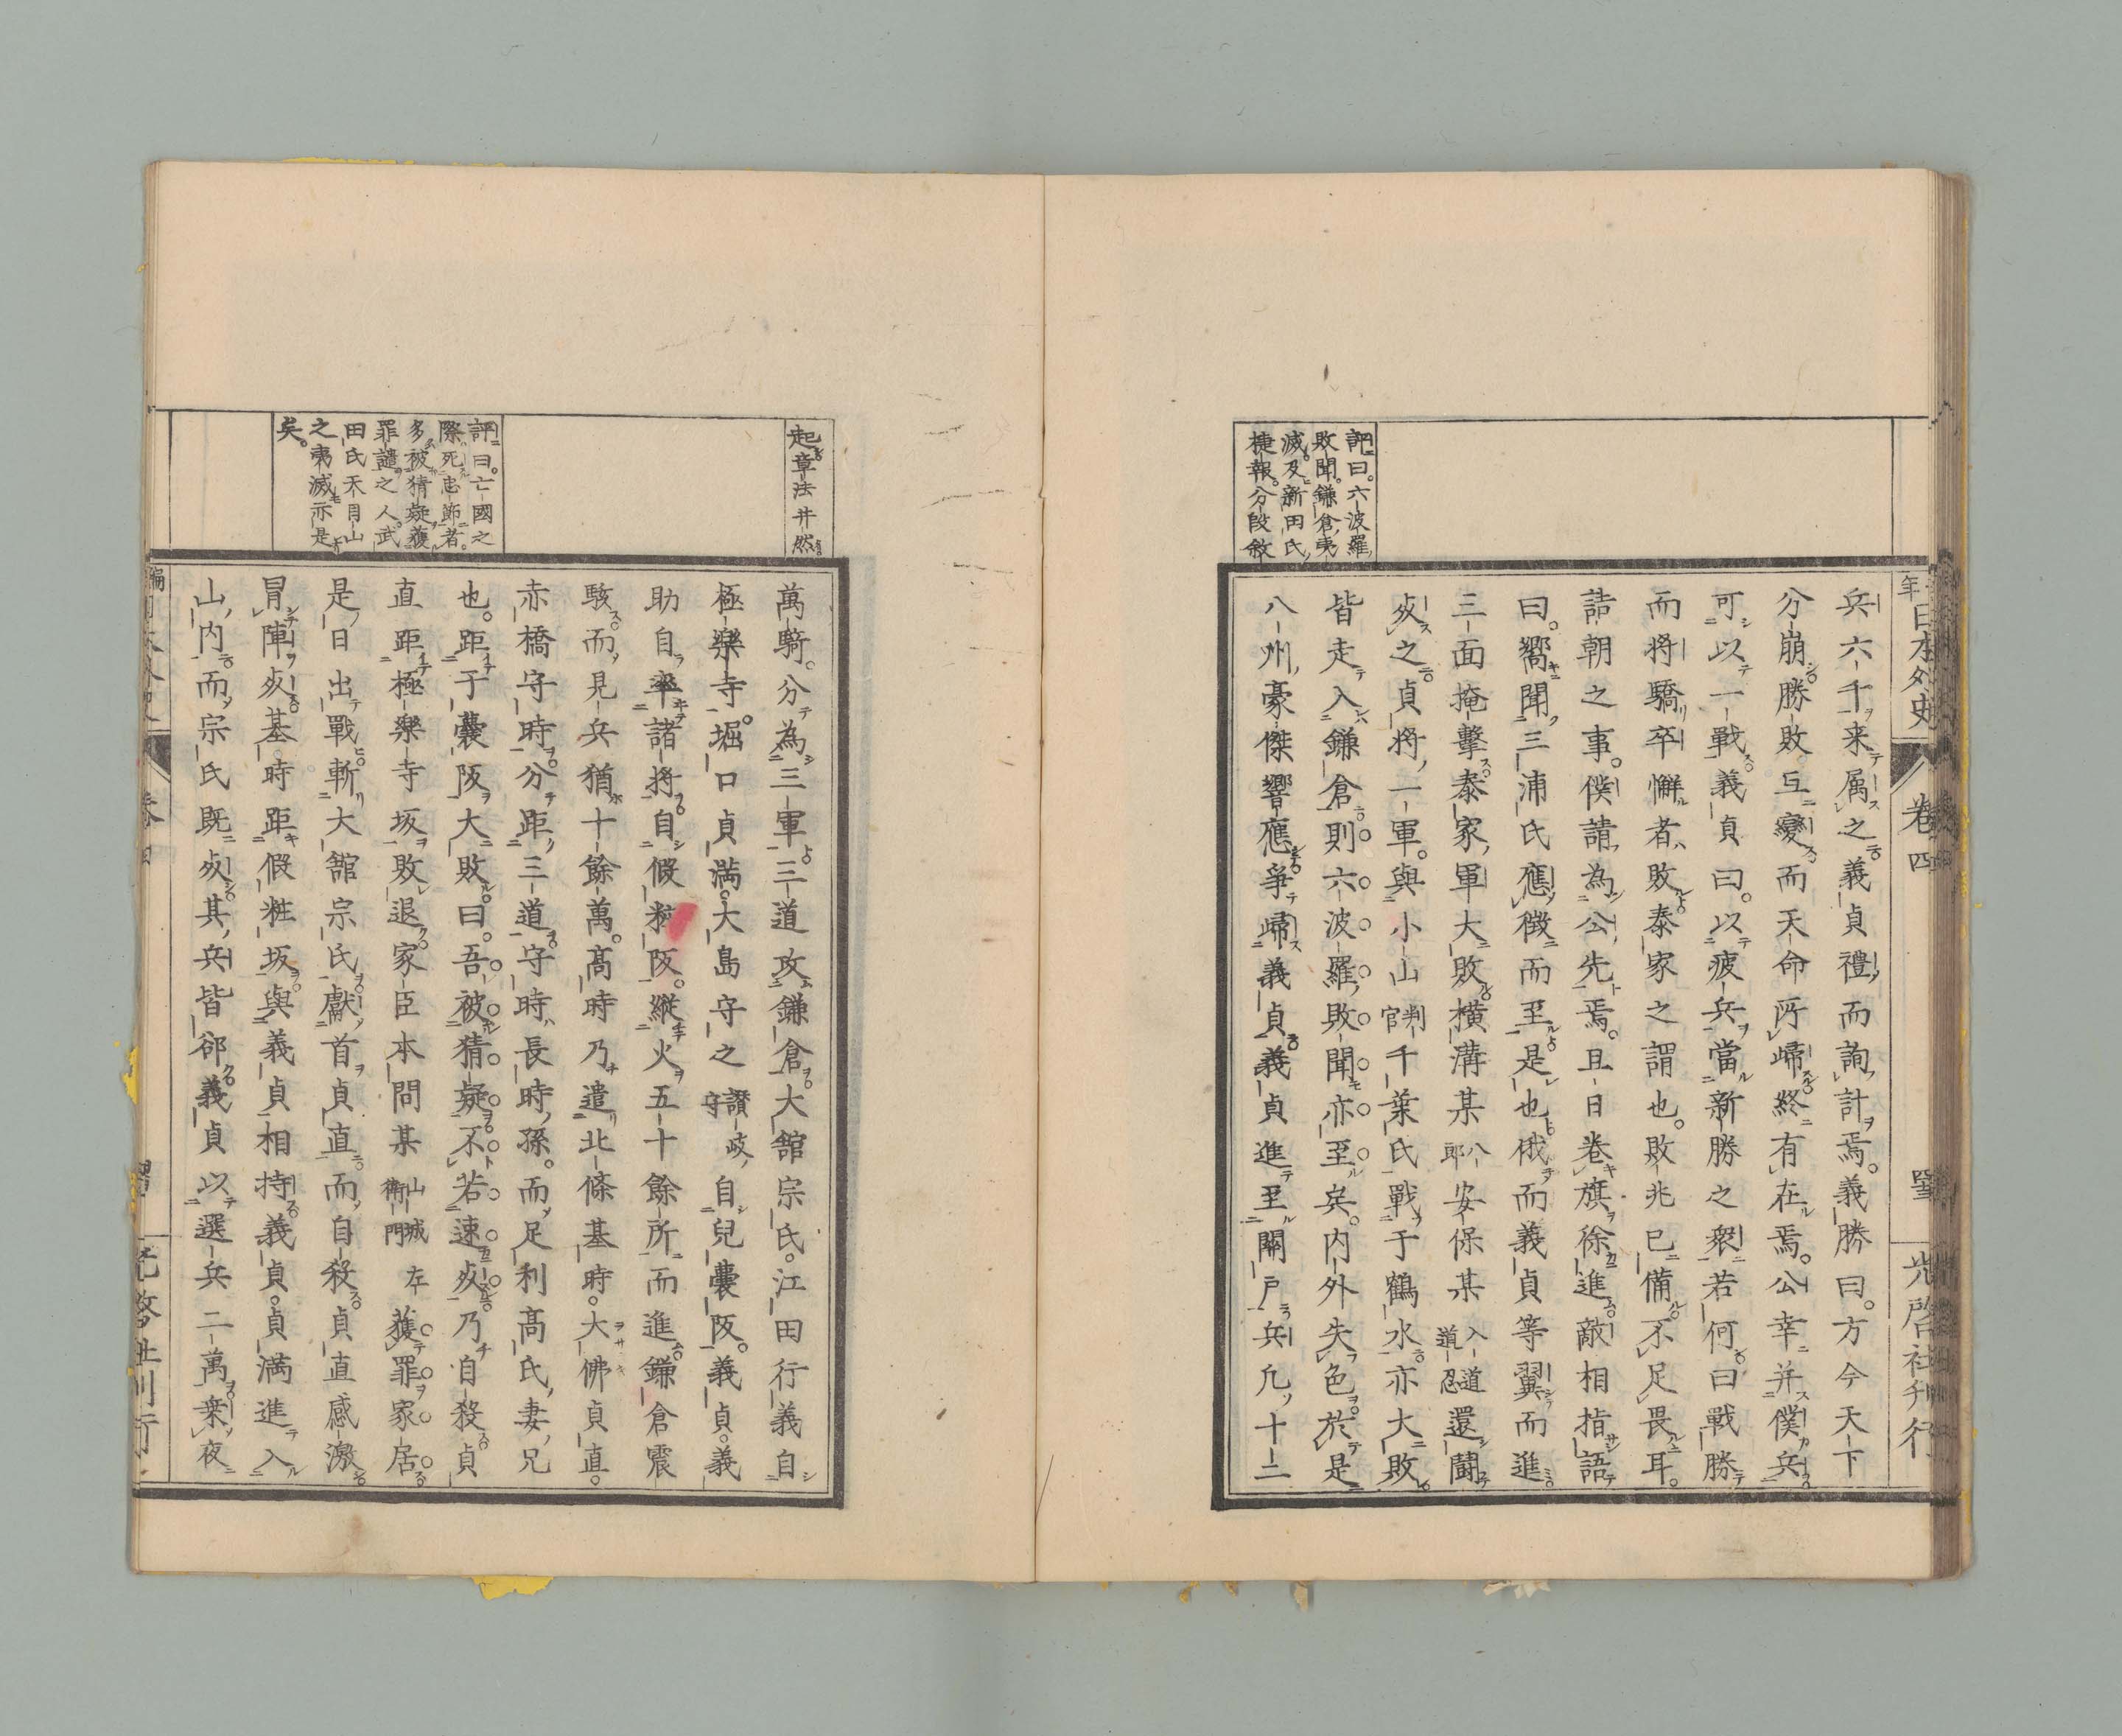 日本外史
卷四
光啓社刋行
評曰。六波羅
敗聞。鎌倉夷
滅。及新田氏
捷報。分段敘
兵六千来属之義貞禮而詢計焉。義勝曰。方今天下
分崩勝敗互變而天命所歸終有在焉。公幸并僕兵
可以一戰義貞曰。以疲兵當新勝之衆若何曰戰勝
而将驕卒懈者敗泰家之謂也。敗兆已備不足畏耳。
詰朝之事。僕請為公先焉。且日卷旗徐進敵相指語
曰。嚮聞三浦氏應徵而至是也俄而義貞等翼而進
三面掩擊泰家軍大敗横溝某八郎安保某入道道忍還鬪
殀之貞将一軍。與小山判官千葉氏戰于鶴水亦大敗
皆走入鎌倉則六波羅敗聞亦至矣。内外失色於是
八州豪傑響應爭歸義貞義貞進至關戸兵凢十二
起章法井然
評曰。亡國之
際死忠節者。
多被猜疑獲
罪譴之人。武
田氏天目山
之夷滅亦是
矣。
萬騎。分為三軍三道攻鎌倉大舘宗氏。江田行義自
極樂寺。堀口貞満。大島守之讃岐守自兒嚢阪。義貞。義
助自率諸将自假粧阪。縱火五十餘所而進鎌倉震
駭。而見兵猶十餘萬。髙時乃遣北條基時。大佛貞直。
赤橋守時分距三道守時長時孫。而足利髙氏妻兄
也。距于嚢阪大敗曰。吾被猜疑不若速殀乃自殺貞
直距極樂寺坂敗退家臣本間某山城左衛門獲罪家居
是日出戰斬大舘宗氏獻首貞直而自殺貞直感激
冒陣殀基時距假粧坂與義貞相持義貞。貞満進入
山内而宗氏既殀其兵皆卻義貞以選兵二萬乗夜